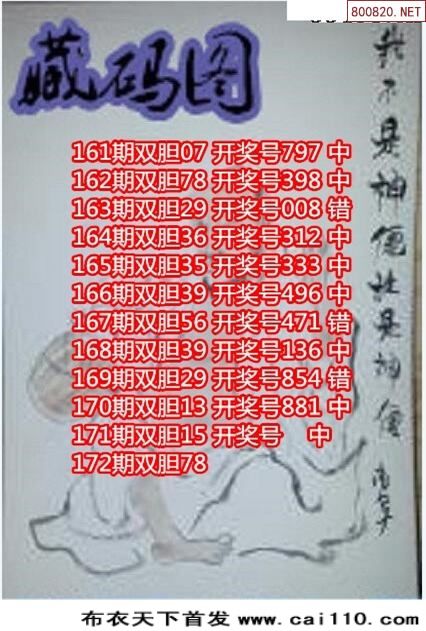 800820.NET
藏码图
161期双胆07 开奖号797 中
162期双胆78 开奖号398 中
163期双胆29 开奖号008 错
164期双胆36 开奖号312 中
165期双胆35 开奖号333 中
166期双胆39 开奖号496 中
167期双胆56 开奖号471 错
168期双胆39 开奖号136 中
169期双胆29 开奖号854 错
170期双胆13 开奖号881 中
171期双胆15 开奖号 中
172期双胆78
布衣天下首发 www.cai110.com